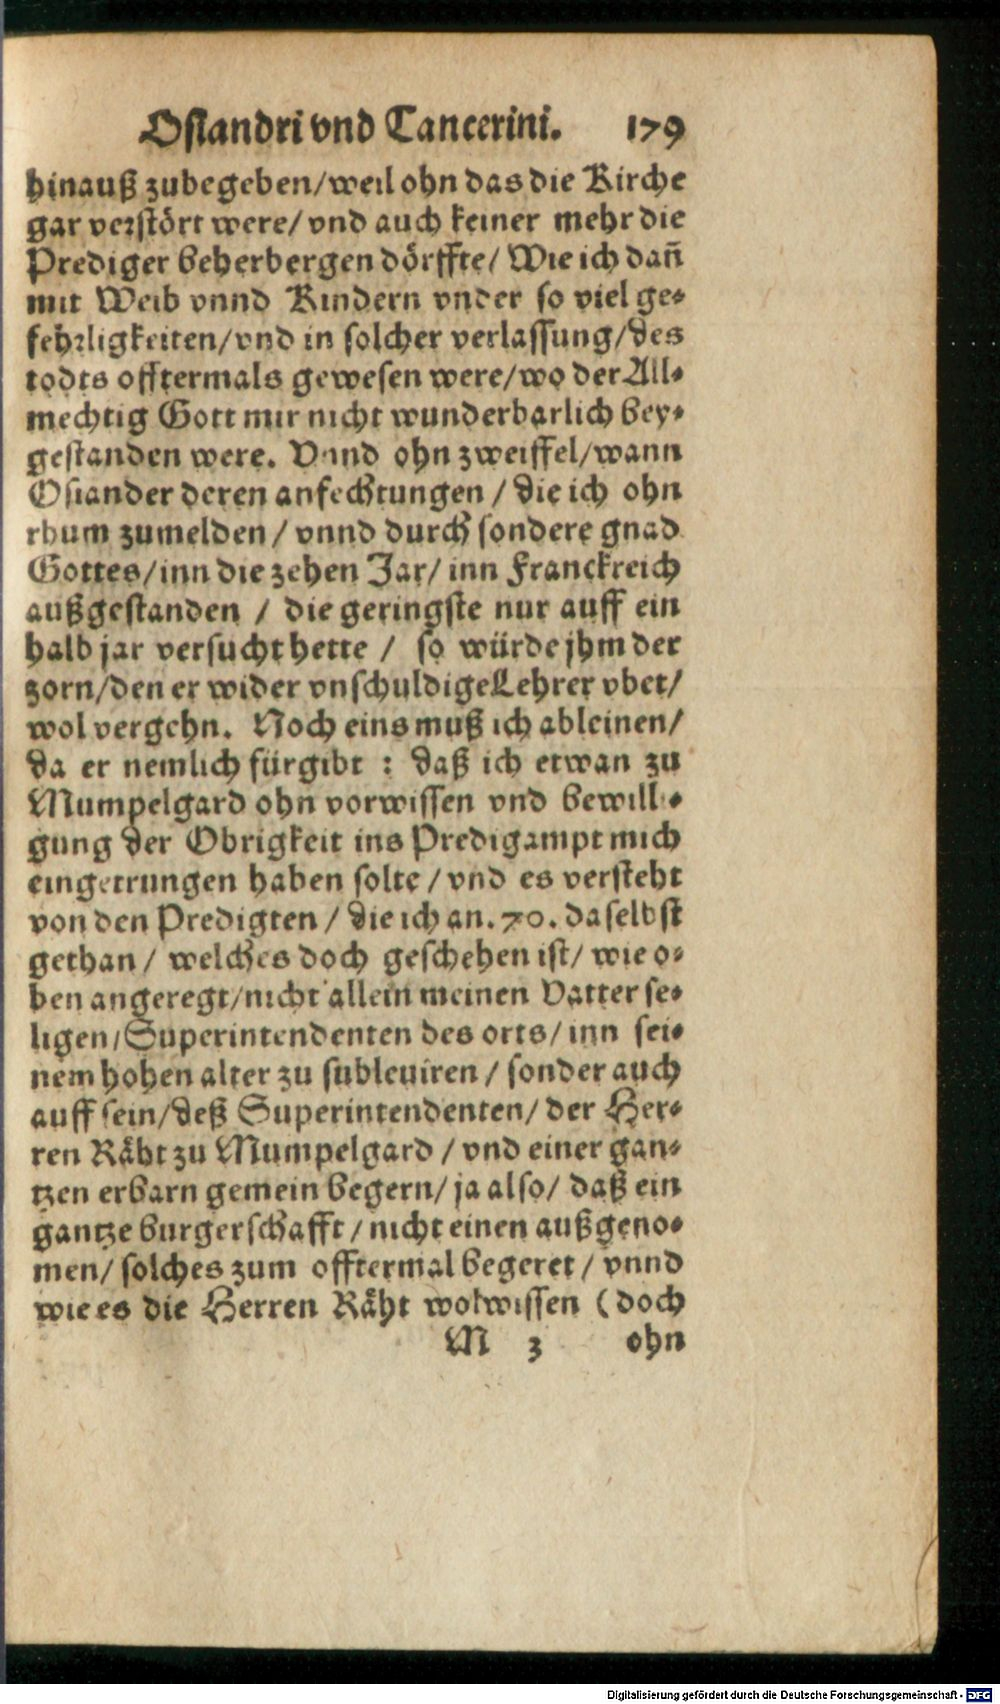 Osiandri vnd Cancerini. 179
hinauß zubegeben/weil ohn das die Kirche
gar verstört were/ vnd auch keiner mehr die
Prediger beherbergen dörffte/ Wie ich dañ
mit Weib vnnd Kindern vnder so viel ge-
fehrligkeiten/vnd in solcher verlassung/des
todts offtermals gewesen were/wo der All-
mechtig Gott mir nicht wunderbarlich bey-
gestanden were. Vnnd ohn zweiffel/wann
Osiander deren anfechtungen / die ich ohn
rhum zumelden / vnnd durch sondere gnad
Gottes/inn die zehen Jar/ inn Franckreich
außgestanden / die geringste nur auff ein
halb jar versucht hette / so würde jhm der
zorn/den er wider vnschuldige Lehrer vbet/
wol vergehn. Noch eins muß ich ableinen/
da er nemlich fürgibt : daß ich etwan zu
Mumpelgard ohn vorwissen vnd bewilli-
gung der Obrigkeit ins Predigampt mich
eingetrungen haben solte / vnd es versteht
von den Predigten / die ich an. 70. daselbst
gethan / welches doch geschehen ist/ wie o-
ben angeregt/nicht allein meinen Vatter se-
ligen/Superintendenten des orts/ inn sei-
nem hohen alter zu subleuiren / sonder auch
auff sein/deß Superintendenten/ der Her-
ren Räht zu Mumpelgard / vnd einer gan-
tzen erbarn gemein begern/ ja also/ daß ein
gantze burgerschafft / nicht einen außgeno-
men/ solches zum offtermal begeret / vnnd
wie es die Herren Räht wol wissen (doch
M 3 ohn
Digitalisierung gefördert durch die Deutsche Forschungsgemeinschaft - DFG